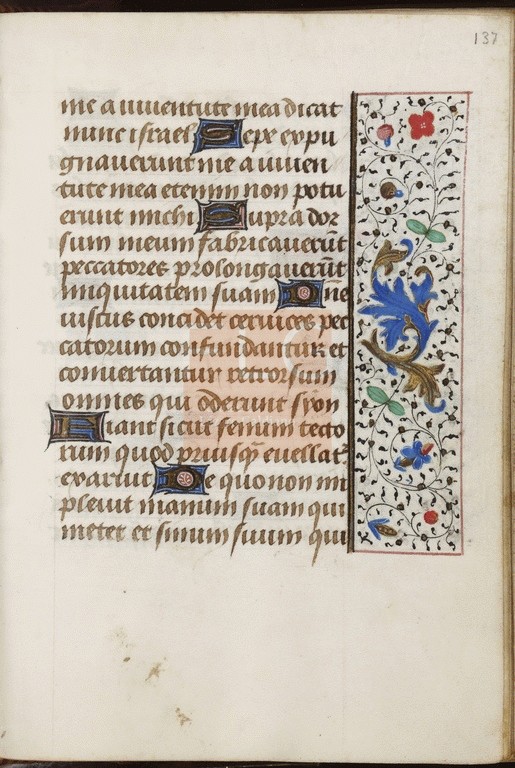 137
me a iuuentute mea dicat
nunc israel Sepe expu
gnauerunt me a iuuen
tute mea etenim non potu
erunt michi Supra dor
sum meum fabricauerūt
peccatores prolongauerūt
iniquitatem suam Dñe
iustus concidet ceruices pec
catorum confundantur et
conuertantur retrorsum
omnes qui oderunt syon
Fiant sicut fenum tecto
rum quod priusq̄ euellat᷑
exaruit De quo non im
pleuit manum suam qui
metet et sinum suum qui